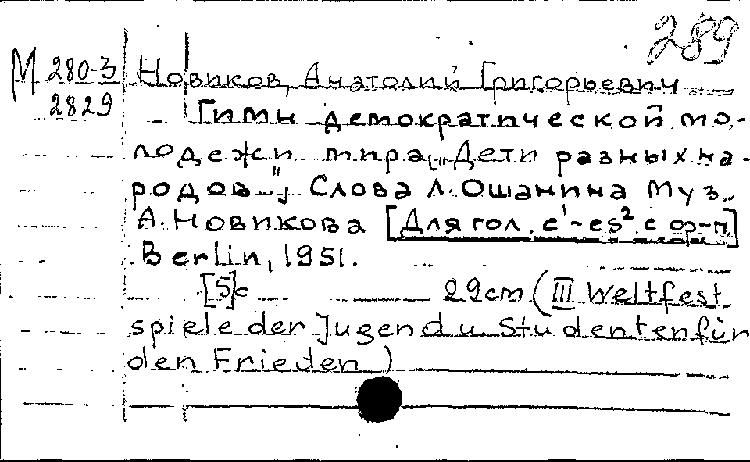 289
М 280-3 Новиков, Анатолий Григорьевич
2829 Гимн демократической мо-
лодежи мира „Дети разных на-
родов". Слова Л. Ошанина муз.
А. Новикова [Для гол. c¹-es² с ор-п]
Berlin, 1951.
[5]с 29cm (III Weltfest
spiele der Jugend u. Studenten für
den Frieden)